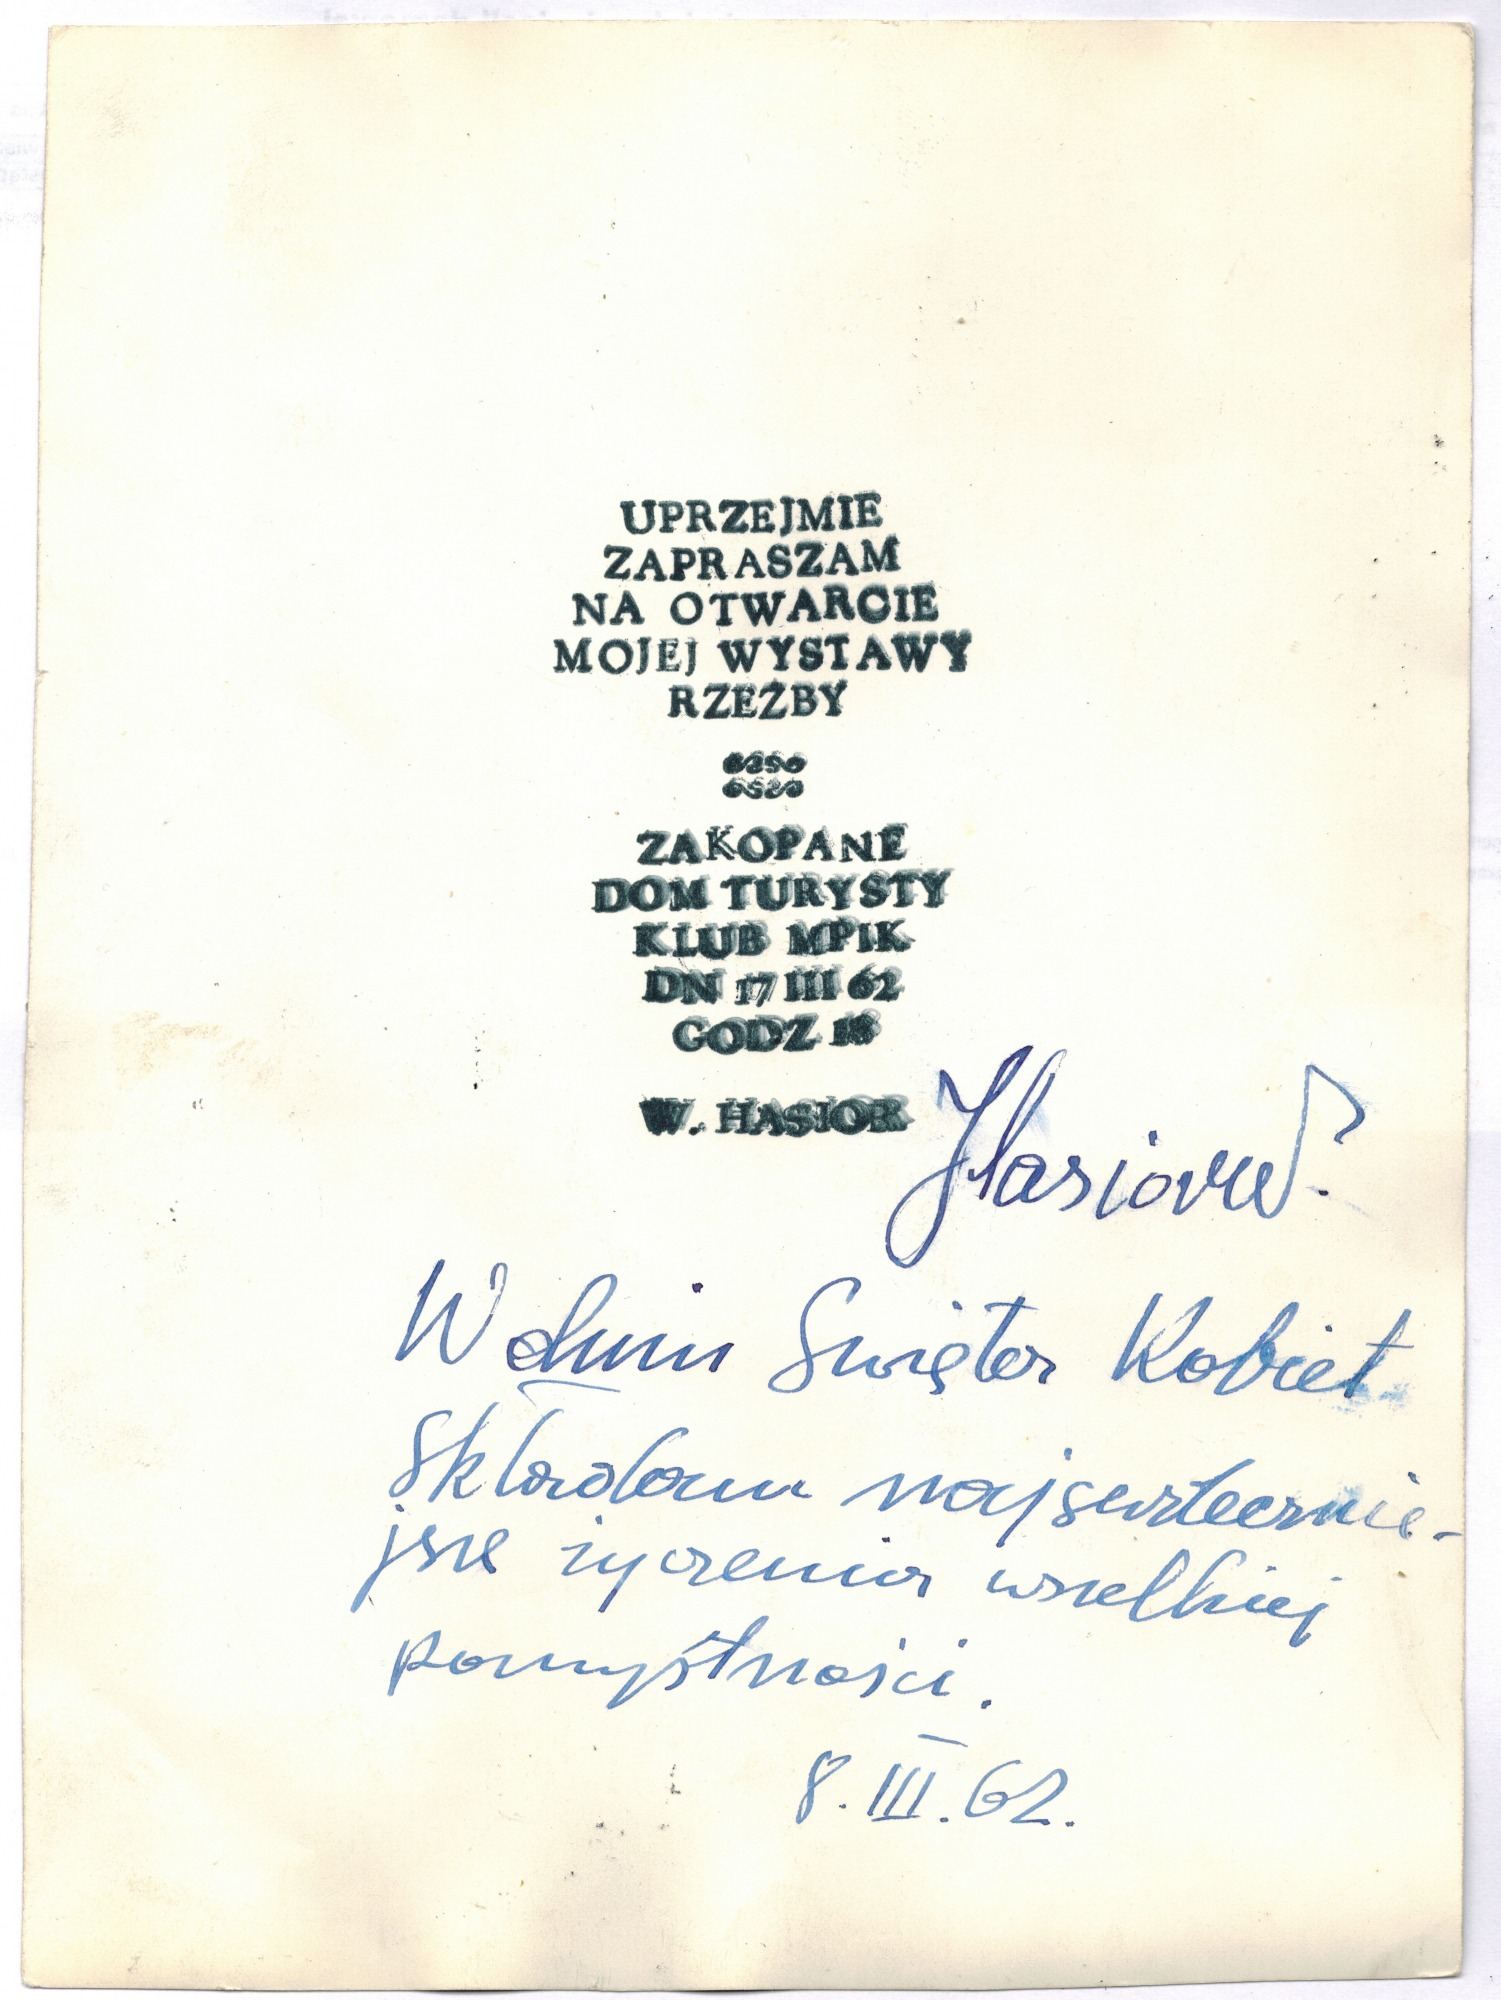 UPRZEJMIE
ZAPRASZAM
NA OTWARCIE
MOJEJ WYSTAWY
RZEŹBY
ZAKOPANE
DOM TURYSTY
KLUB MPIK
DN 17 III 62
GODZ 18
W. HASIOR
Hasior W.
W dniu Święta Kobiet
składam najserdecznie-
jsze życzenia wszelkiej
pomyślności.
8. III. 62.